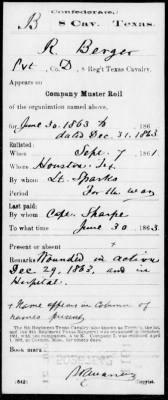 Confederate.
B 8 Cav. Texas.
R. Berger
Pvt, Co. D, 8 Reg't Texas Cavalry.
Appears on
Company Muster Roll
of the organization named above,
for June 30. 1863 to 186
dated Dec. 31. 1863
Enlisted:
When Sept. 7, 1861
Where Houston. Tx.
By whom Lt. Sparks
Period For the war
Last paid:
By whom Capt. Sharpe
To what time June 30, 1863
Present or absent +
Remarks: Wounded in action
Dec 29. 1863. and in
Hospital.
+ Name appears in column of
names present.
Book mark:
(642)
Copyist.